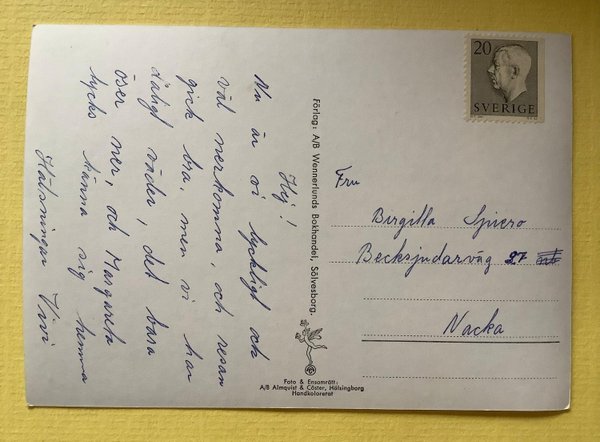 Hej!
Nu är vi lyckligt och
väl nerkomna, och resan
gick bra, men vi har
dåligt väder, det bara
öser ner, och Margareta
tycks känna sig hemma
Hälsningar Vivi
Förlag: A/B Wennerlunds Bokhandel, Sölvesborg.
Foto & Ensamrätt:
A/B Almqvist & Cöster, Hälsingborg
Handkolorerat
20
SVERIGE
Fru
Birgitta
Becksjudarväg 27
Nacka